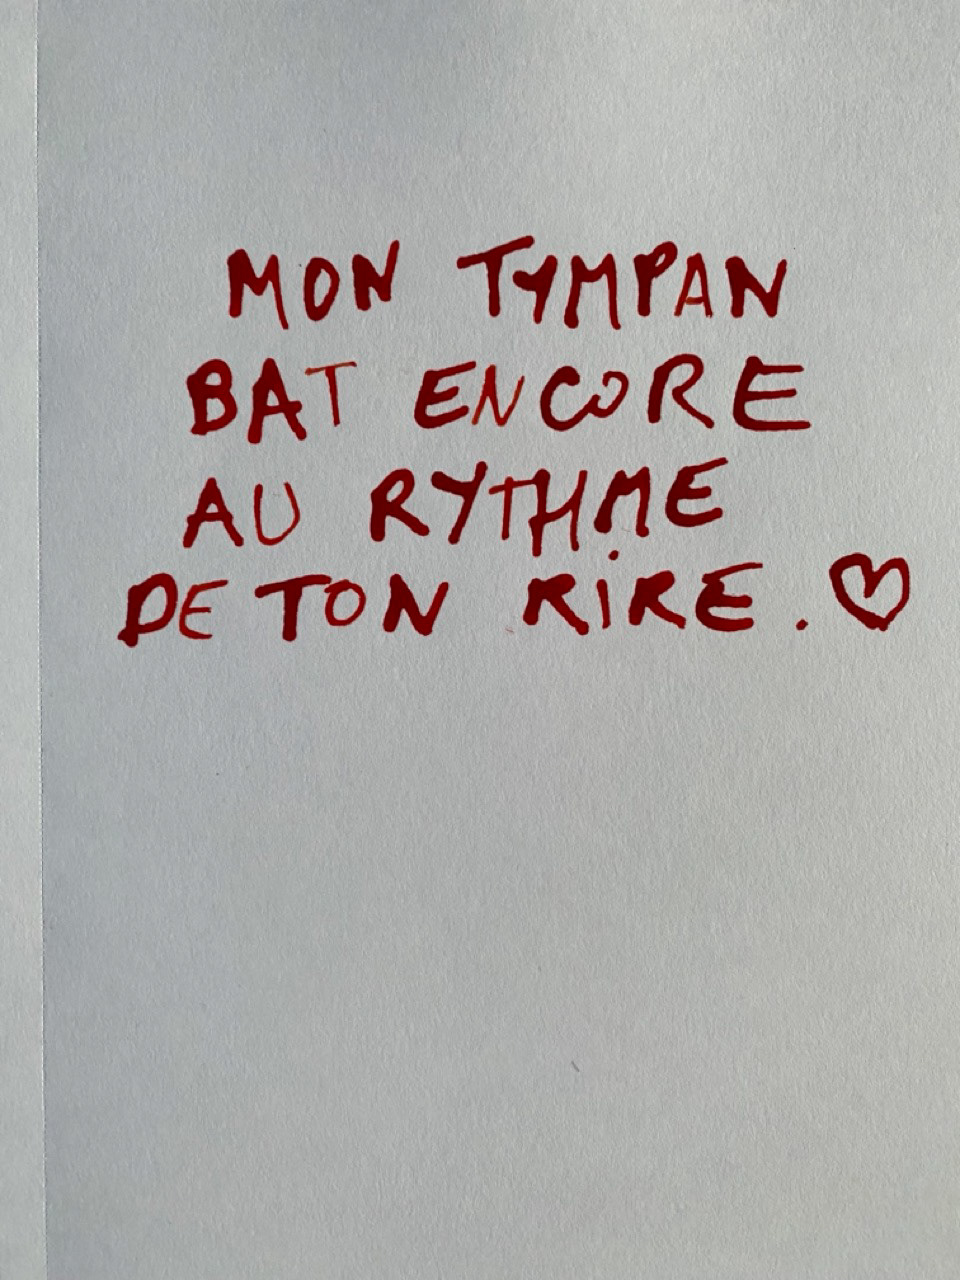 MON TYMPAN
BAT ENCORE
AU RYTHME
DE TON RIRE. ♡